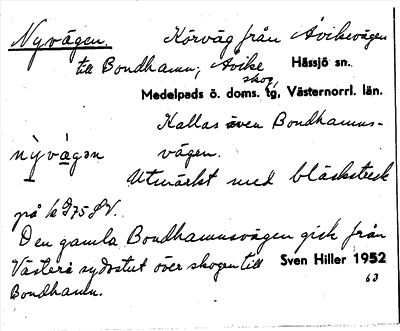 Nyvägen. Körväg från Åvikevägen
till Bondhamn; Åvike skog, Hässjö sn.
Medelpads ö. doms. tg, Västernorrl. län.
Kallas även Bondhamns-
nỳvägən vägen.
Utmärkt med bläckstreck
på k 975 SV.
Den gamla Bondhamnsvägen gick från
Västerå sydostut över skogen till Sven Hiller 1952
Bondhamn. 63